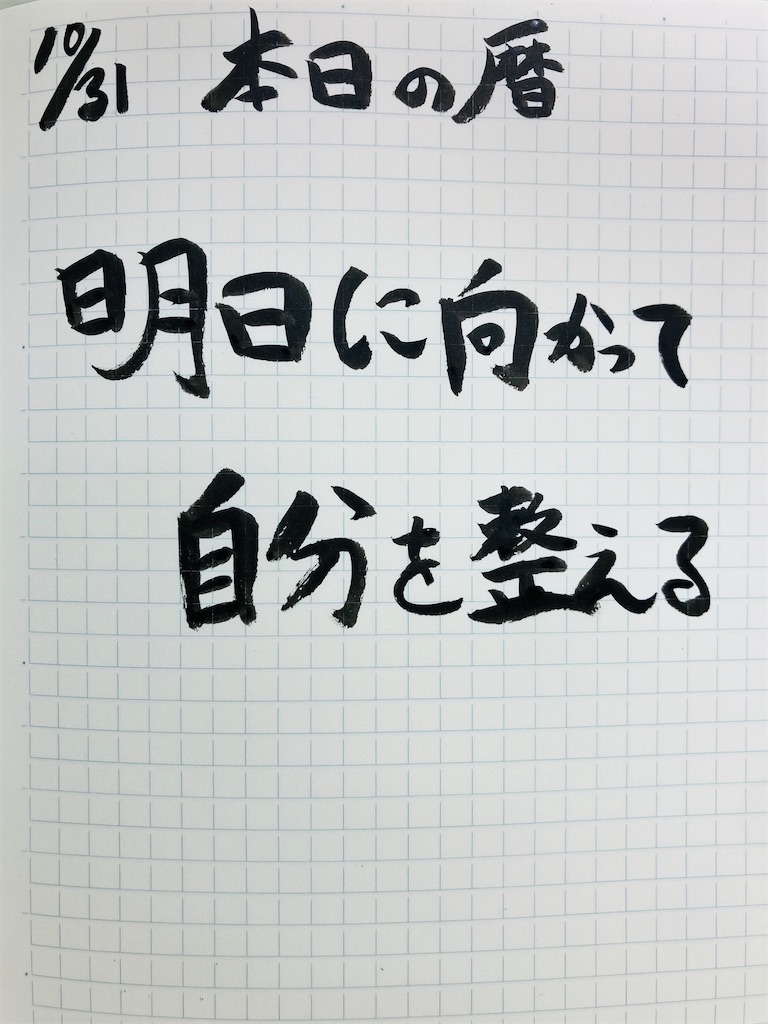 10/31 本日の暦
明日に向かって
自分を整える